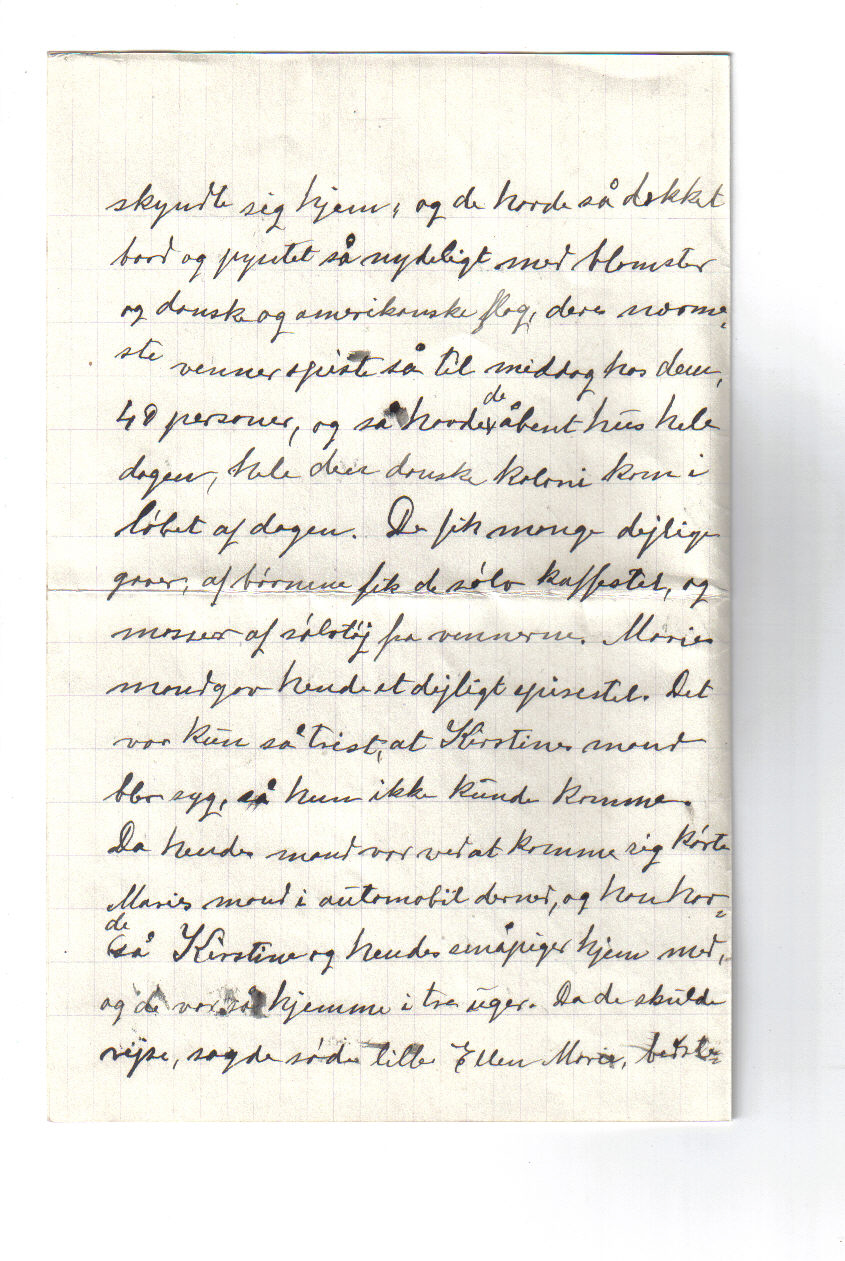 skyndte sig hjem, og de havde så dækket
bord og pyntet så nydeligt med blomster
og danske og amerikanske flag, deres nærme-
ste venner spiste så til middag hos dem,
48 personer, og så havde de åbent hus hele
dagen, hele den danske koloni kom i
løbet af dagen. De fik mange dejlige
gaver, af børnene fik de sølv kaffestel, og
masser af sølvtøj fra vennerne. Maries
mand gav hende et dejligt spisestel. Det
var kun så trist, at Kirstines mand
blev syg, så hun ikke kunde komme.
Da hendes mand var ved at komme sig kørte
Maries mand i automobil derned, og han hav-
de så Kirstine og hendes småpiger hjem med,
og de var så hjemme i tre uger. Da de skulde
rejse, sagde søde lille Ellen Marie, bedste-